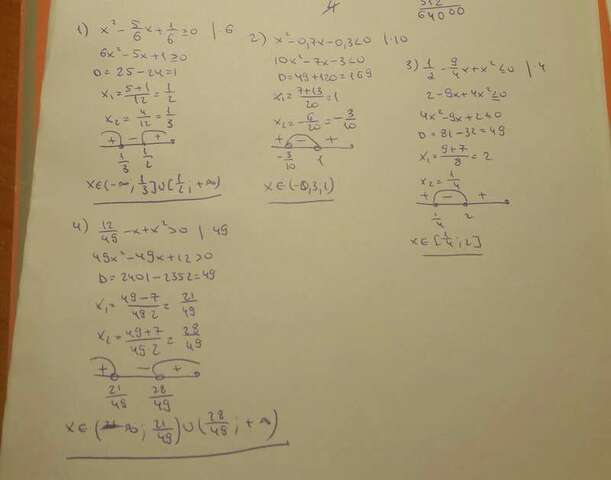 4
512
64000
1) x² - 5/6 x + 1/6 ≥ 0 | ·6
6x² - 5x + 1 ≥ 0
D = 25 - 24 = 1
x₁ = (5+1)/12 = 1/2
x₂ = 4/12 = 1/3
+ - +
1/3 1/2
x∈(-∞; 1/3]∪[1/2; +∞)
2) x² - 0,7x - 0,3 < 0 | ·10
10x² - 7x - 3 < 0
D = 49 + 120 = 169
x₁ = (7+13)/20 = 1
x₂ = -6/20 = -3/10
+ - +
-3/10 1
x∈(-0,3; 1)
3) 1/2 - 9/4 x + x² ≤ 0 | ·4
2 - 9x + 4x² ≤ 0
4x² - 9x + 2 ≤ 0
D = 81 - 32 = 49
x₁ = (9+7)/8 = 2
x₂ = 1/4
+ - +
1/4 2
x∈[1/4; 2]
4) 12/49 - x + x² > 0 | ·49
49x² - 49x + 12 > 0
D = 2401 - 2352 = 49
x₁ = (49-7)/(49·2) = 21/49
x₂ = (49+7)/(49·2) = 28/49
+ - +
21/49 28/49
x∈(-∞; 21/49)∪(28/49; +∞)